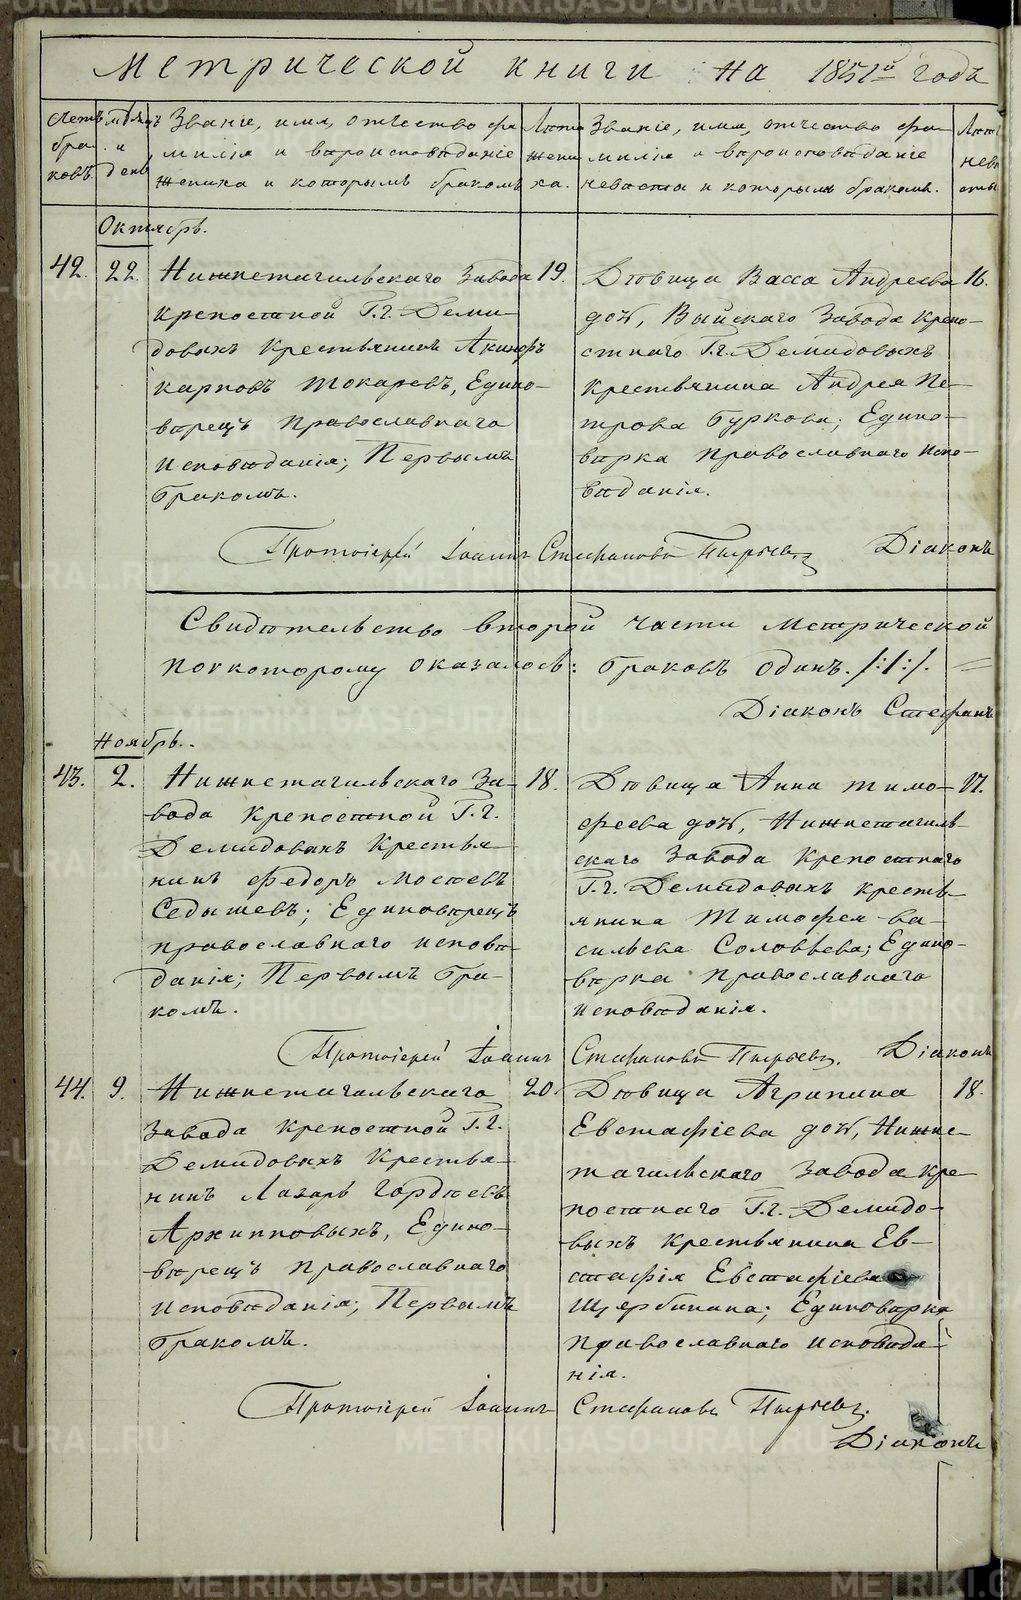 Метрической книги на 1851й годъ
Счетъ бра- ковъ.
мѣсяцъ и день
Званіе, имя, отчество фа-
милія и вѣроисповѣданіе
жениха и которымъ бракомъ
Лѣта жени ха.
Званіе, имя, отчество фа-
милія и вѣроисповѣданіе
невѣсты и которымъ бракомъ.
Лѣта невѣ сты
Октябрь.
42. 22. Нижнетагильскаго Завода 19.
крепостной Г.г. Деми-
довыхъ Крестьянинъ Акинфъ
карповъ Токаревъ, Едино-
вѣрецъ Православнаго
исповѣданія; Первымъ
бракомъ.
Дѣвица Васса Андреева 16.
дочь, Выйскаго Завода крепо-
стнаго Г.г. Демидовыхъ
Крестьянина Андрея Пе-
трова Буркова; Едино-
вѣрка Православнаго Испо-
вѣданія.
Протоіерей Іоаннъ Стефановъ Пырьевъ Діаконъ
Свидѣтельство второй части Метрической
по которому оказалось: браковъ одинъ. /:1:/. =
Діаконъ Стефанъ
Ноябрь.
43. 2. Нижнетагильскаго За- 18.
вода крепостной Г.г.
Демидовыхъ Крестья-
нинъ Федоръ
Седышевъ; Единовѣрецъ
православнаго исповѣ-
данія; Первымъ бра-
комъ.
Дѣвица Анна тимо- 17.
феева дочь, Нижнетагиль-
скаго Завода крепостнаго
Г.г. Демидовыхъ кресть-
янина Тимофея Ва-
сильева Соловьева; Едино-
вѣрка Православнаго
исповѣданія.
Протоіерей Іоаннъ Стефановъ Пырьевъ. Діаконъ
44. 9. Нижнетагильскаго 20.
Завода крепостной Г.г.
Демидовыхъ Крестья-
нинъ Лазарь Гордѣевъ
Архиповыхъ, Едино-
вѣрецъ православнаго
исповѣданія; Первымъ
бракомъ.
Дѣвица Агрипина 18.
Евстафіева дочь, Нижне-
тагильскаго Завода кре-
постнаго Г.г. Демидо-
выхъ крестьянина Ев-
стафія Евстафіева
Щербинина; Единовѣрка
православнаго исповѣда-
нія.
Протоіерей Іоаннъ Стефановъ Пырьевъ.
Діаконъ
METRIKI.GASO-URAL.RU